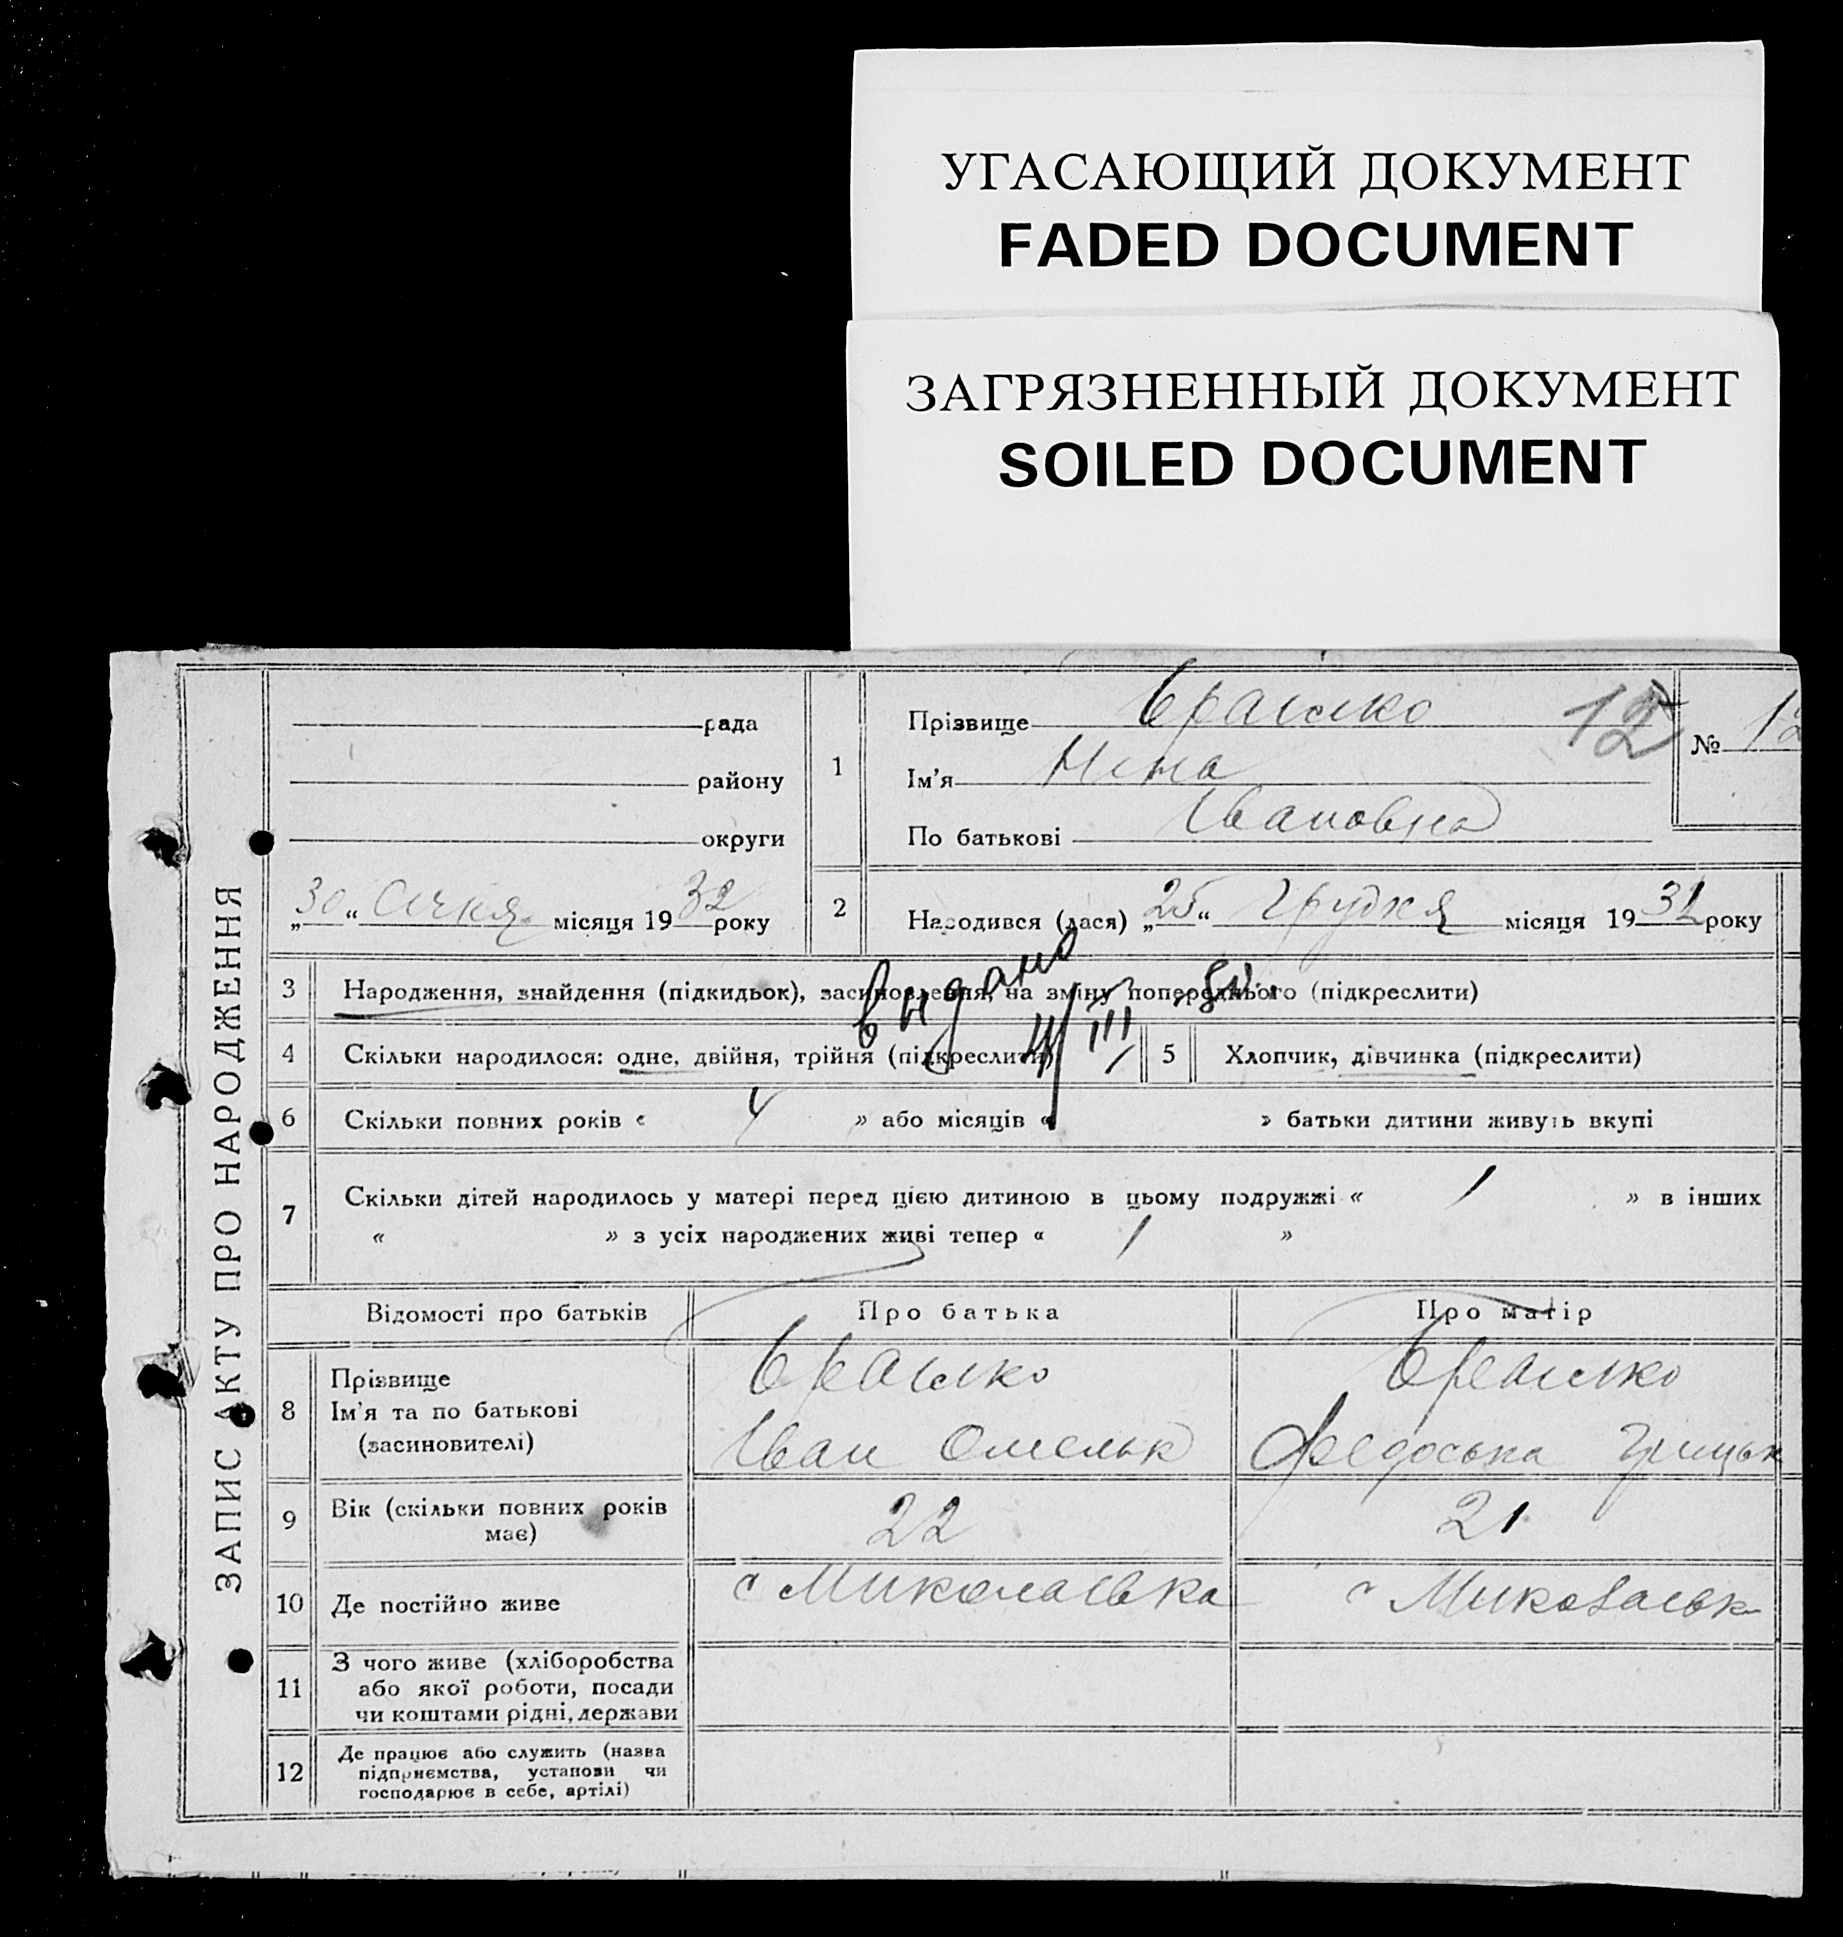 УГАСАЮЩИЙ ДОКУМЕНТ
FADED DOCUMENT
ЗАГРЯЗНЕННЫЙ ДОКУМЕНТ
SOILED DOCUMENT
ЗАПИС АКТУ ПРО НАРОДЖЕННЯ
рада
району
округи
„30“ Січня місяця 1932 року
1
Прізвище
12
№ 12
Ім'я Нина
По батькові Івановна
2
Народився (лася) „25“ Грудня місяця 1931 року
3 Народження, знайдення (підкидьок), засиновлення, на зміну попереднього (підкреслити)
Видано
4 Скільки народилося: одне, двійня, трійня (підкреслити)
5 Хлопчик, дівчинка (підкреслити)
6 Скільки повних років « 4 » або місяців « » батьки дитини живуть вкупі
7 Скільки дітей народилось у матері перед цією дитиною в цьому подружжі « 1 » в інших
« » з усіх народжених живі тепер « 1 »
Відомості про батьків
Про батька
Про матір
8 Прізвище
Ім'я та по батькові
(засиновителі)
Іван Омельк
Федоська Грицьк
9 Вік (скільки повних років
має)
22
21
10 Де постійно живе
с Миколаівка
с Миколаівк
11 З чого живе (хліборобства
або якої роботи, посади
чи коштами рідні, держави
12 Де працює або служить (назва
підприємства, установи чи
господарює в себе, артілі)